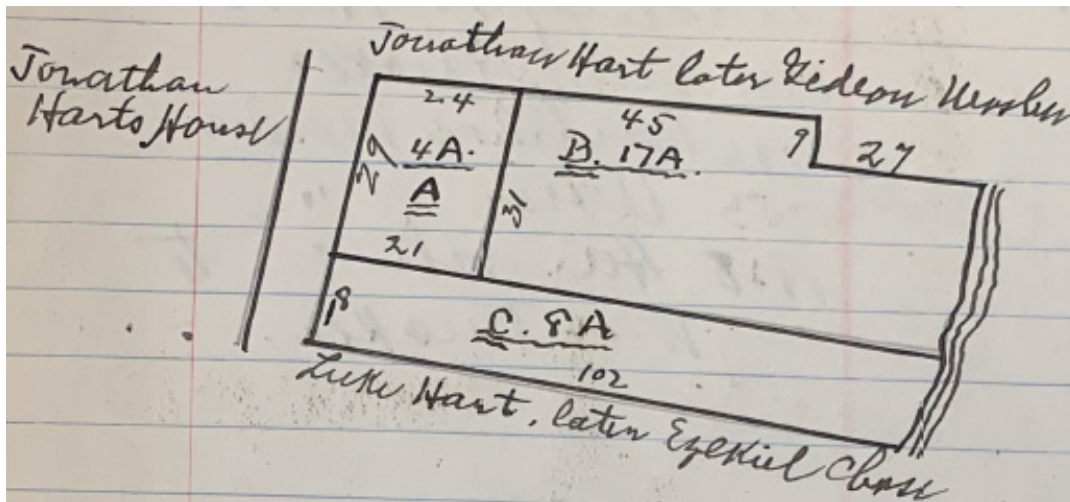 Jonathan
Harts House
Jonathan Hart later Gideon
24
29
4A.
A
21
31
45
B. 17A.
9
27
18
C. 8 A
102
Luke Hart, later Ezekiel Chase